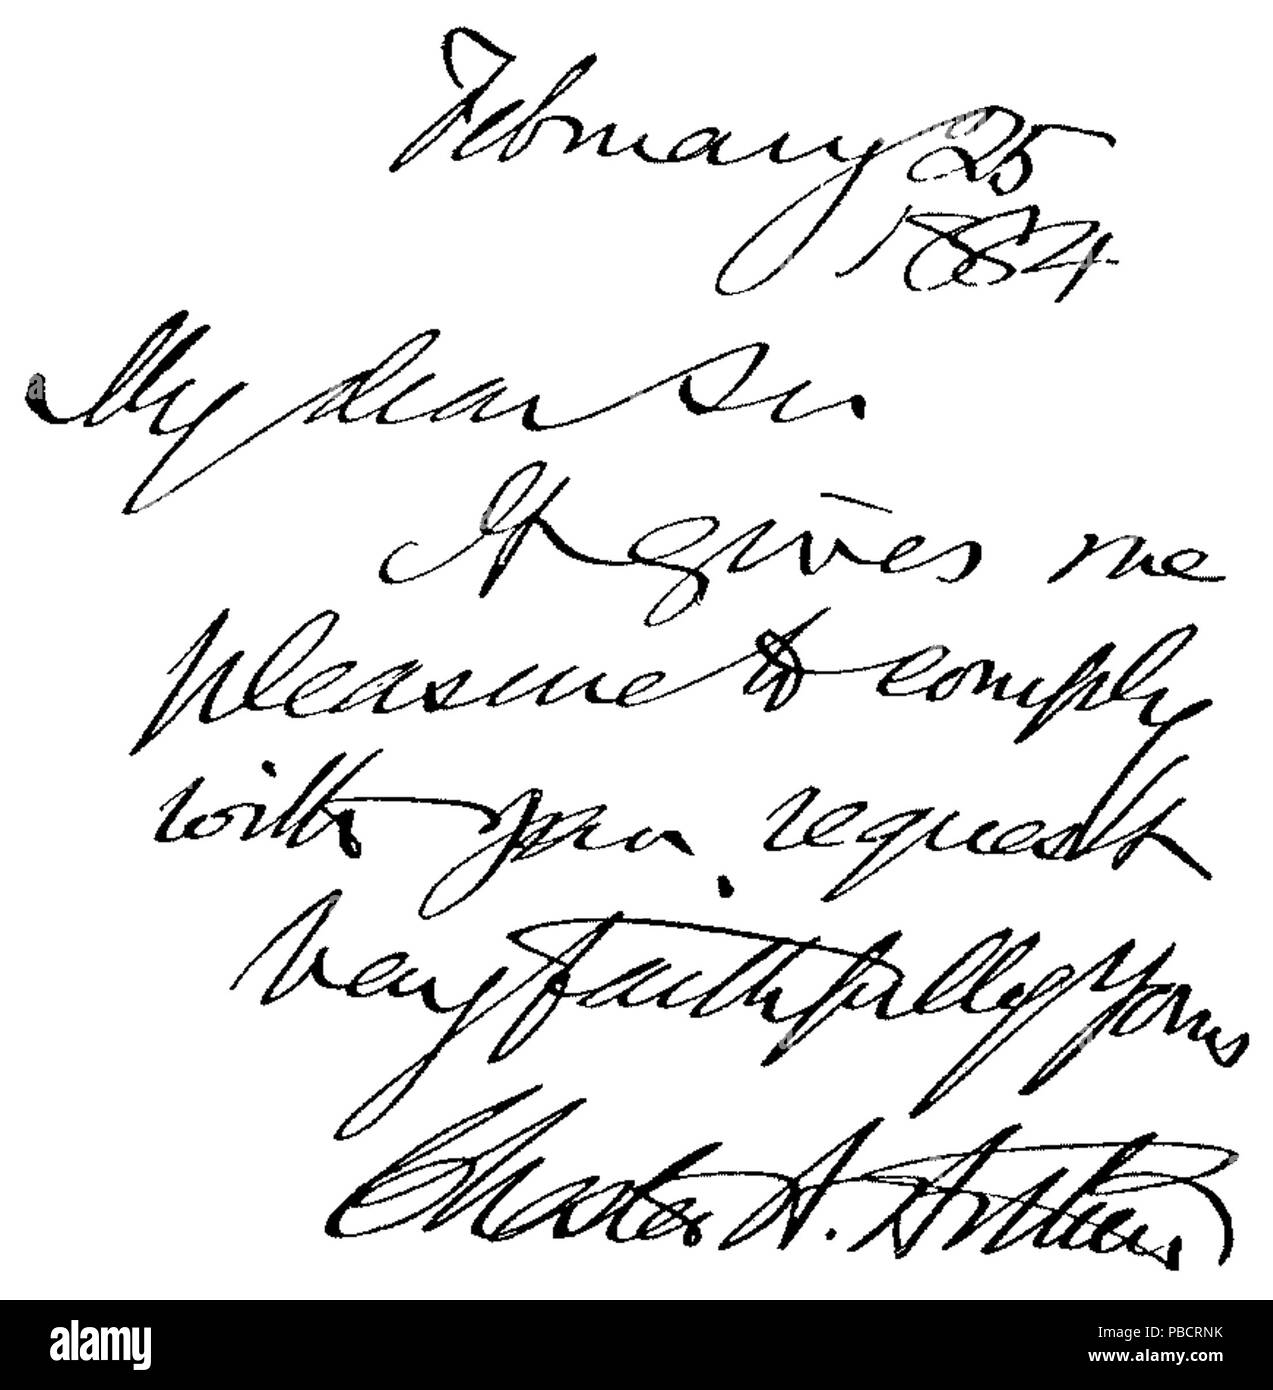 February 25
1884
My dear Sir
It gives me
pleasure to comply
with your request.
Very faithfully Yours
Chester A. Arthur
alamy
Image ID: PBCRNK
www.alamy.com